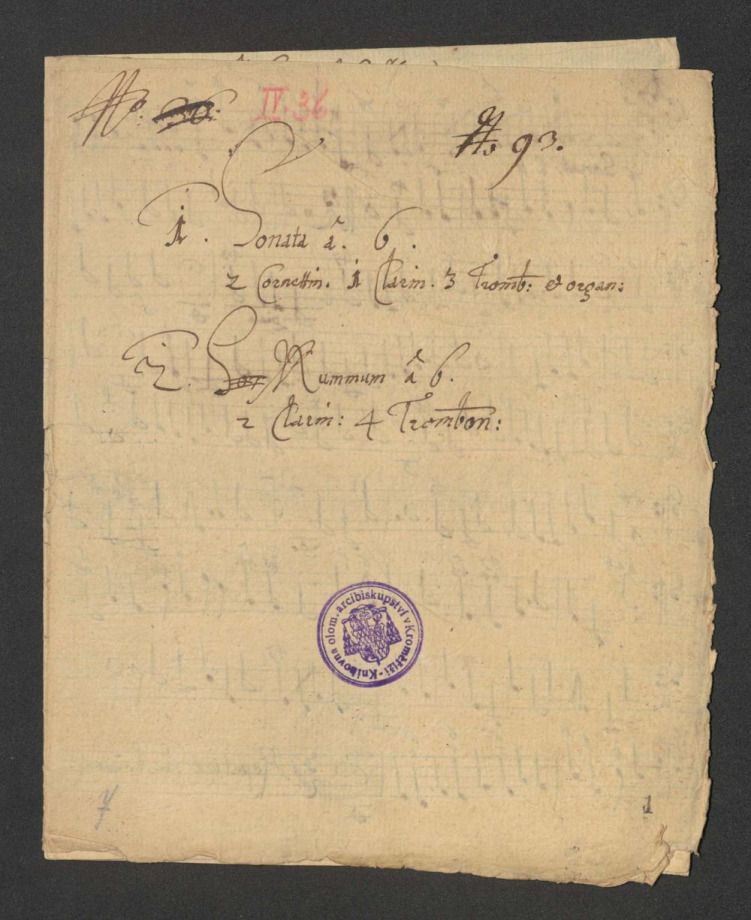 No: 36: IV. 36
No 93.
1. Sonata â. 6.
2 Cornettin. 1 Clarin. 3 Tromb: et organ:
2. Nummum â 6.
2 Clarin: 4 Trombon:
Knihovna olom. arcibiskupství v Kroměříži
1